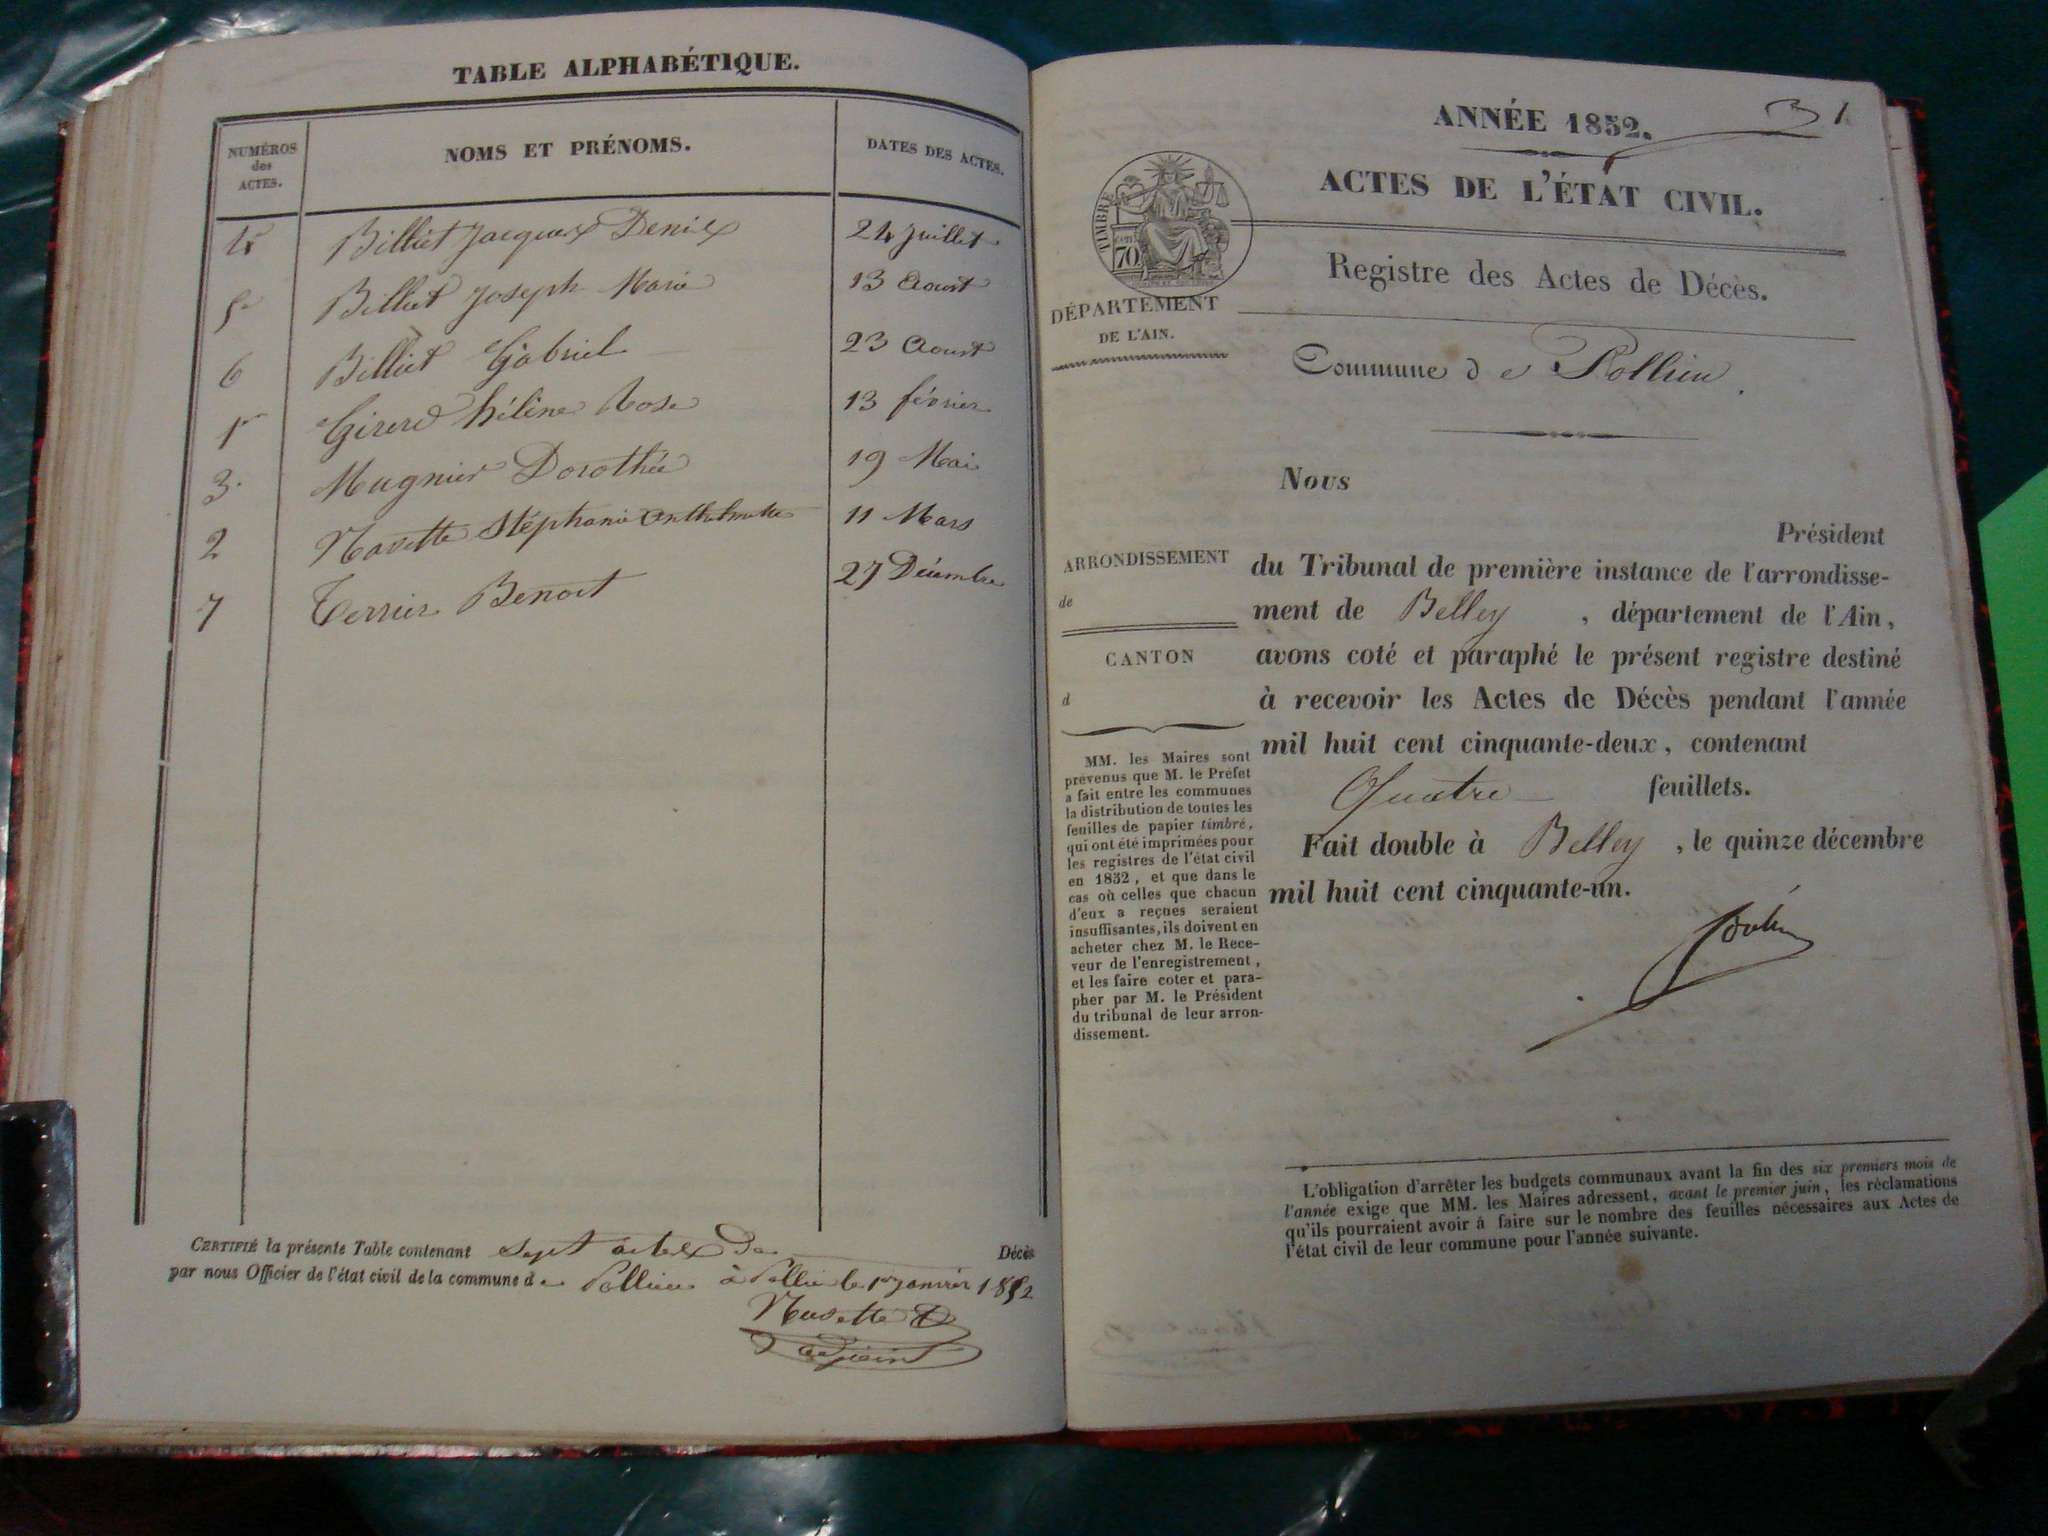 TABLE ALPHABÉTIQUE.
NUMÉROS
des
ACTES.
NOMS ET PRÉNOMS.
DATES DES ACTES.
4 Billiet Jacques Denis 24 Juillet
5 Billiet Joseph Marie 13 Aoust
6 Billiet Gabriel 23 Aoust
1 Girerd hélène Rose 13 février
3 Mugnier Dorothée 19 Mai
2 Navette Stéphanie Anthelmette 11 Mars
7 Terrier Benoit 27 Décembre
CERTIFIÉ la présente Table contenant sept actes de Décès
par nous Officier de l'état civil de la commune de Pollieu à Pollieu le 1er Janvier 1852
Navette
adjoint
31
ANNÉE 1852.
ACTES DE L'ÉTAT CIVIL.
TIMBRE
70
Registre des Actes de Décès.
DÉPARTEMENT
DE L'AIN.
Commune de Pollieu
Nous
Président
du Tribunal de première instance de l'arrondisse-
ment de Belley, département de l'Ain,
avons coté et paraphé le présent registre destiné
à recevoir les Actes de Décès pendant l'année
mil huit cent cinquante-deux, contenant
Quatre feuillets.
Fait double à Belley, le quinze décembre
mil huit cent cinquante-un.
ARRONDISSEMENT
de
CANTON
d
MM. les Maires sont
prévenus que M. le Préfet
a fait entre les communes
la distribution de toutes les
feuilles de papier timbré,
qui ont été imprimées pour
les registres de l'état civil
en 1852, et que dans le
cas où celles que chacun
d'eux a reçues seraient
insuffisantes, ils doivent en
acheter chez M. le Rece-
veur de l'enregistrement,
et les faire coter et para-
pher par M. le Président
du tribunal de leur arron-
dissement.
L'obligation d'arrêter les budgets communaux avant la fin des six premiers mois de
l'année exige que MM. les Maires adressent, avant le premier juin, les réclamations
qu'ils pourraient avoir à faire sur le nombre des feuilles nécessaires aux Actes de
l'état civil de leur commune pour l'année suivante.